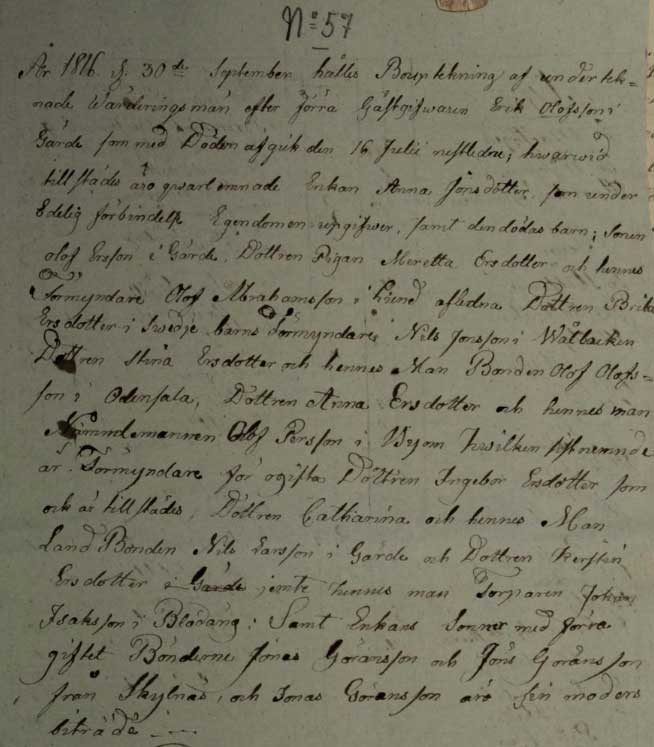 No 57
År 1816 d. 30de September hålles Bouptekning af undertek=
nade Wärderingsmän efter förra Gästgifwaren Erik Olofsson i
Gärde som med Döden afgik den 16 Julii nestledne; hwarwid
tillstädes äro qwarlemnade Enkan Anna Jönsdotter som under
Edelig förbindelse Egendomen upgifwer, samt den dödas barn; Sonen
olof Ersson i Gärde, Dottren Pigan Meretta Ersdotter och hennes
Formyndare Olof Abrahamsson i afledna Dottren Brita
Ersdotter i Swedje barns Förmyndare Nils Jonsson i Wålbacken
Dottren Stina Ersdotter och hennes Man Bonden Olof Olofs=
son i Odensala, Döttren Anna Ersdotter och hennes man
Nämndemannen Olof Persson i Byom hwilken sistnemnde
är Förmyndare för ogifta Döttren Ingebor Ersdotter som
ock är tillstädes, Döttren Catharina och hennes Man
Land Bonden Nils Larsson i Gärde och Dottren Kerstin
Ersdotter i Gärde jemte hennes man Torparen Johan
Isaksson i Blådäng: Samt Enkans Sönner med förra
giftet Bönderne Jonas Göransson och Jöns Göransson
från Skylnäs, och Jonas Göransson äro sin moders
biträde